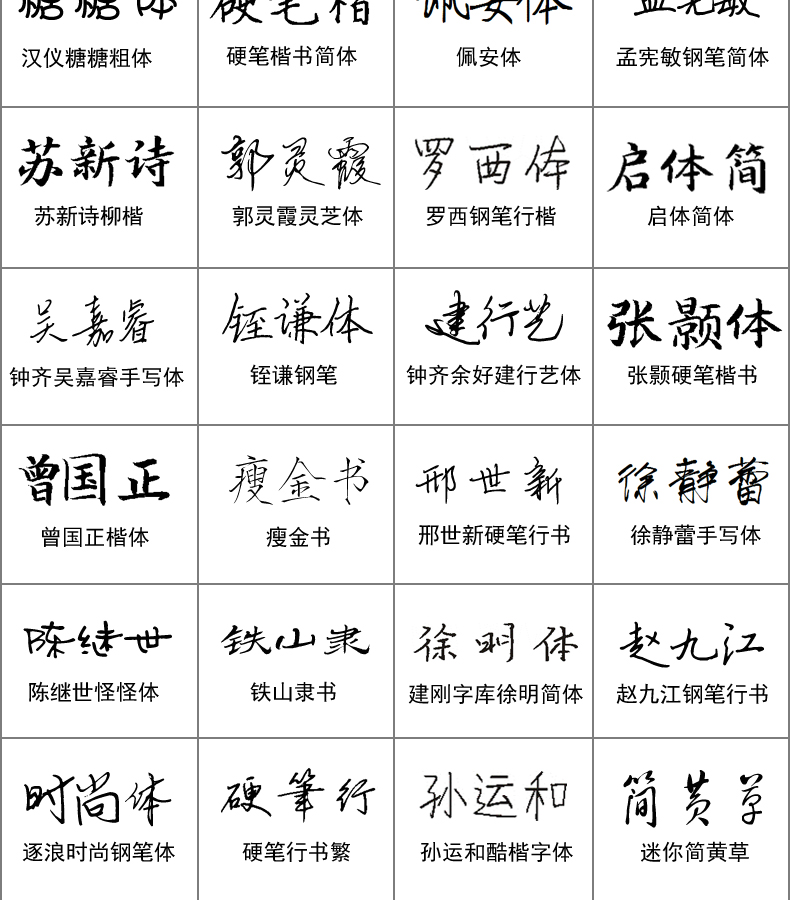 糖糖体
硬笔楷
佩安体
孟宪敏
汉仪糖糖粗体
硬笔楷书简体
佩安体
孟宪敏钢笔简体
苏新诗
郭灵霞
罗西体
启体简
苏新诗柳楷
郭灵霞灵芝体
罗西钢笔行楷
启体简体
吴嘉睿
铚谦体
建行艺
张颢体
钟齐吴嘉睿手写体
铚谦钢笔
钟齐余好建行艺体
张颢硬笔楷书
曾国正
瘦金书
邢世新
徐静蕾
曾国正楷体
瘦金书
邢世新硬笔行书
徐静蕾手写体
陈继世
铁山隶
徐明体
赵九江
陈继世怪怪体
铁山隶书
建刚字库徐明简体
赵九江钢笔行书
时尚体
硬筆行
孙运和
简黄草
逐浪时尚钢笔体
硬笔行书繁
孙运和酷楷字体
迷你简黄草